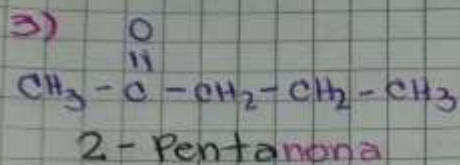 3) O
||
CH3 - C - CH2 - CH2 - CH3
2 - Pentanona